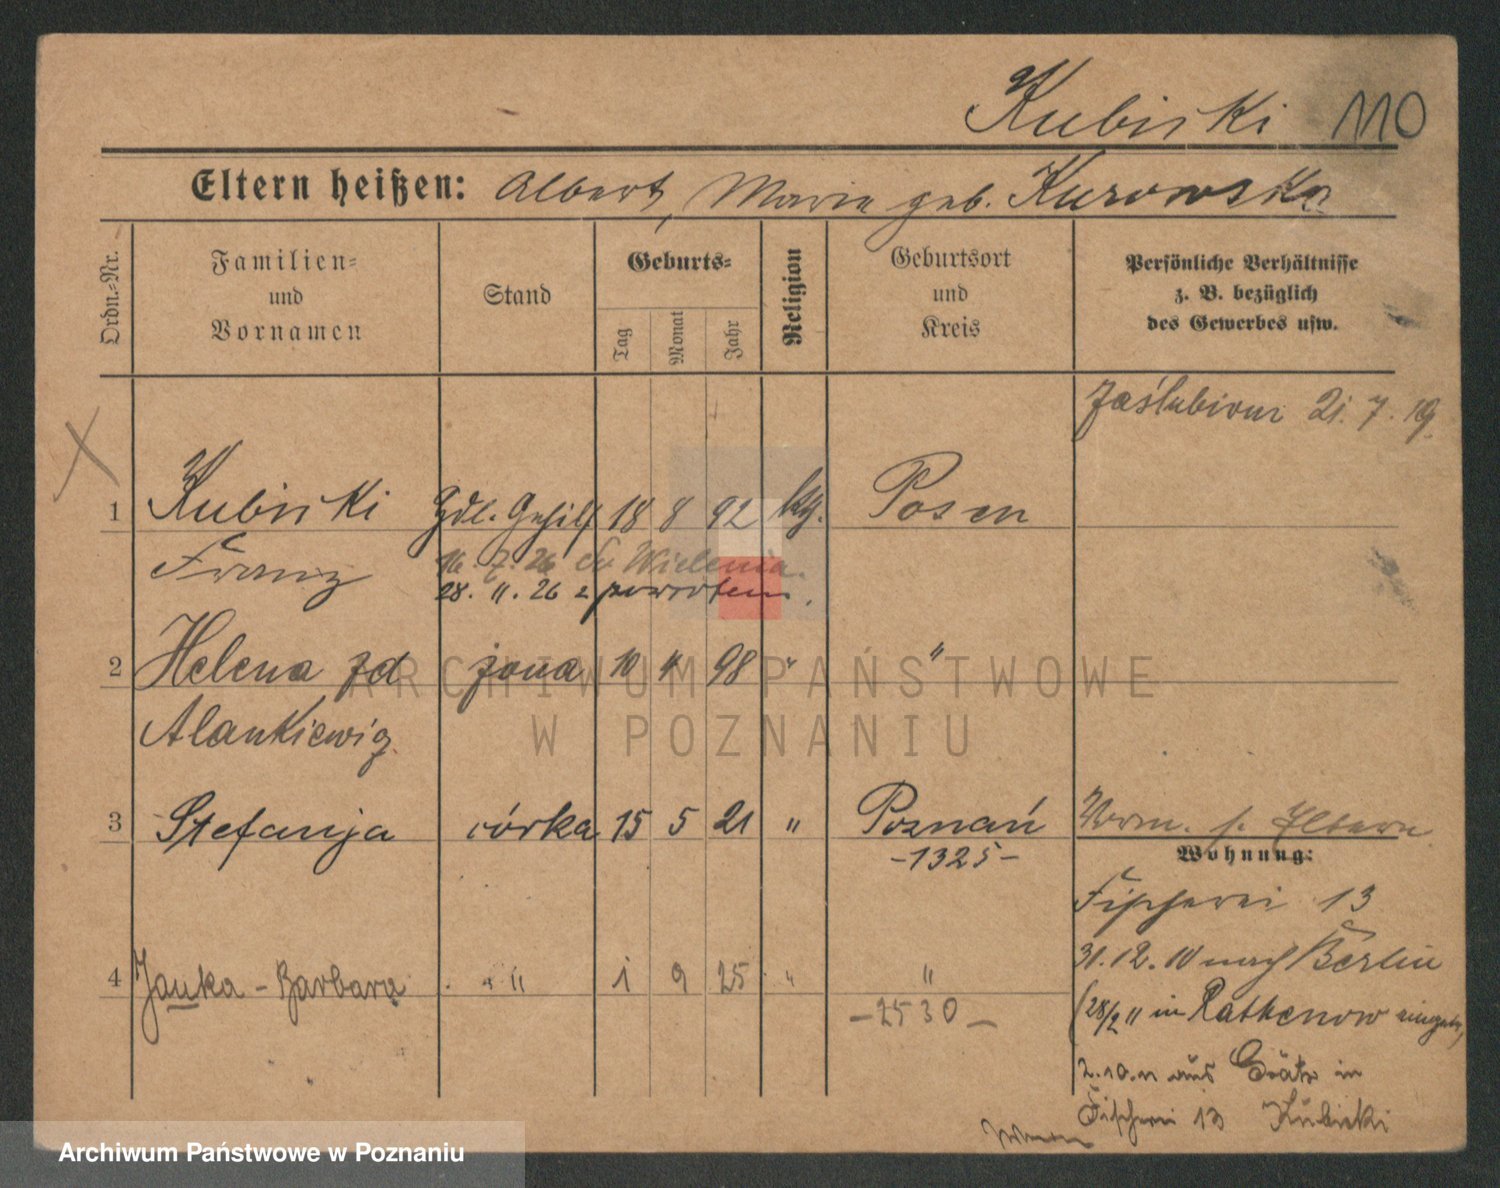 Kubicki 110
Eltern heißen: Albert, Maria geb. Kurowska
Ordn.=Nr.
Familien=
und
Vornamen
Stand
Geburts=
Tag
Monat
Jahr
Religion
Geburtsort
und
Kreis
Persönliche Verhältnisse
z. B. bezüglich
des Gewerbes usw.
zaślubiony 21.7.19.
1 Kubicki Hdl. Gehilf 18 8 92 ktg. Posen
Franz 16.7.26 do Wielenia.
28.11.26 z powrotem.
2 Helena zd żona 10 4 98 " "
Alankiewicz
3 Stefanja córka 15 5 21 " Poznań Vorm. s. Eltern
-1325-
Wohnung:
Fischerei 13
31.12.10 nach Berlin
4 Janka - Barbara " 1 9 25 " "
-2530-
(28/2 11 in Rathenow
2.10.11 aus Grätz in
Fischerei 13 Kubicki
ARCHIWUM PAŃSTWOWE
W POZNANIU
Archiwum Państwowe w Poznaniu